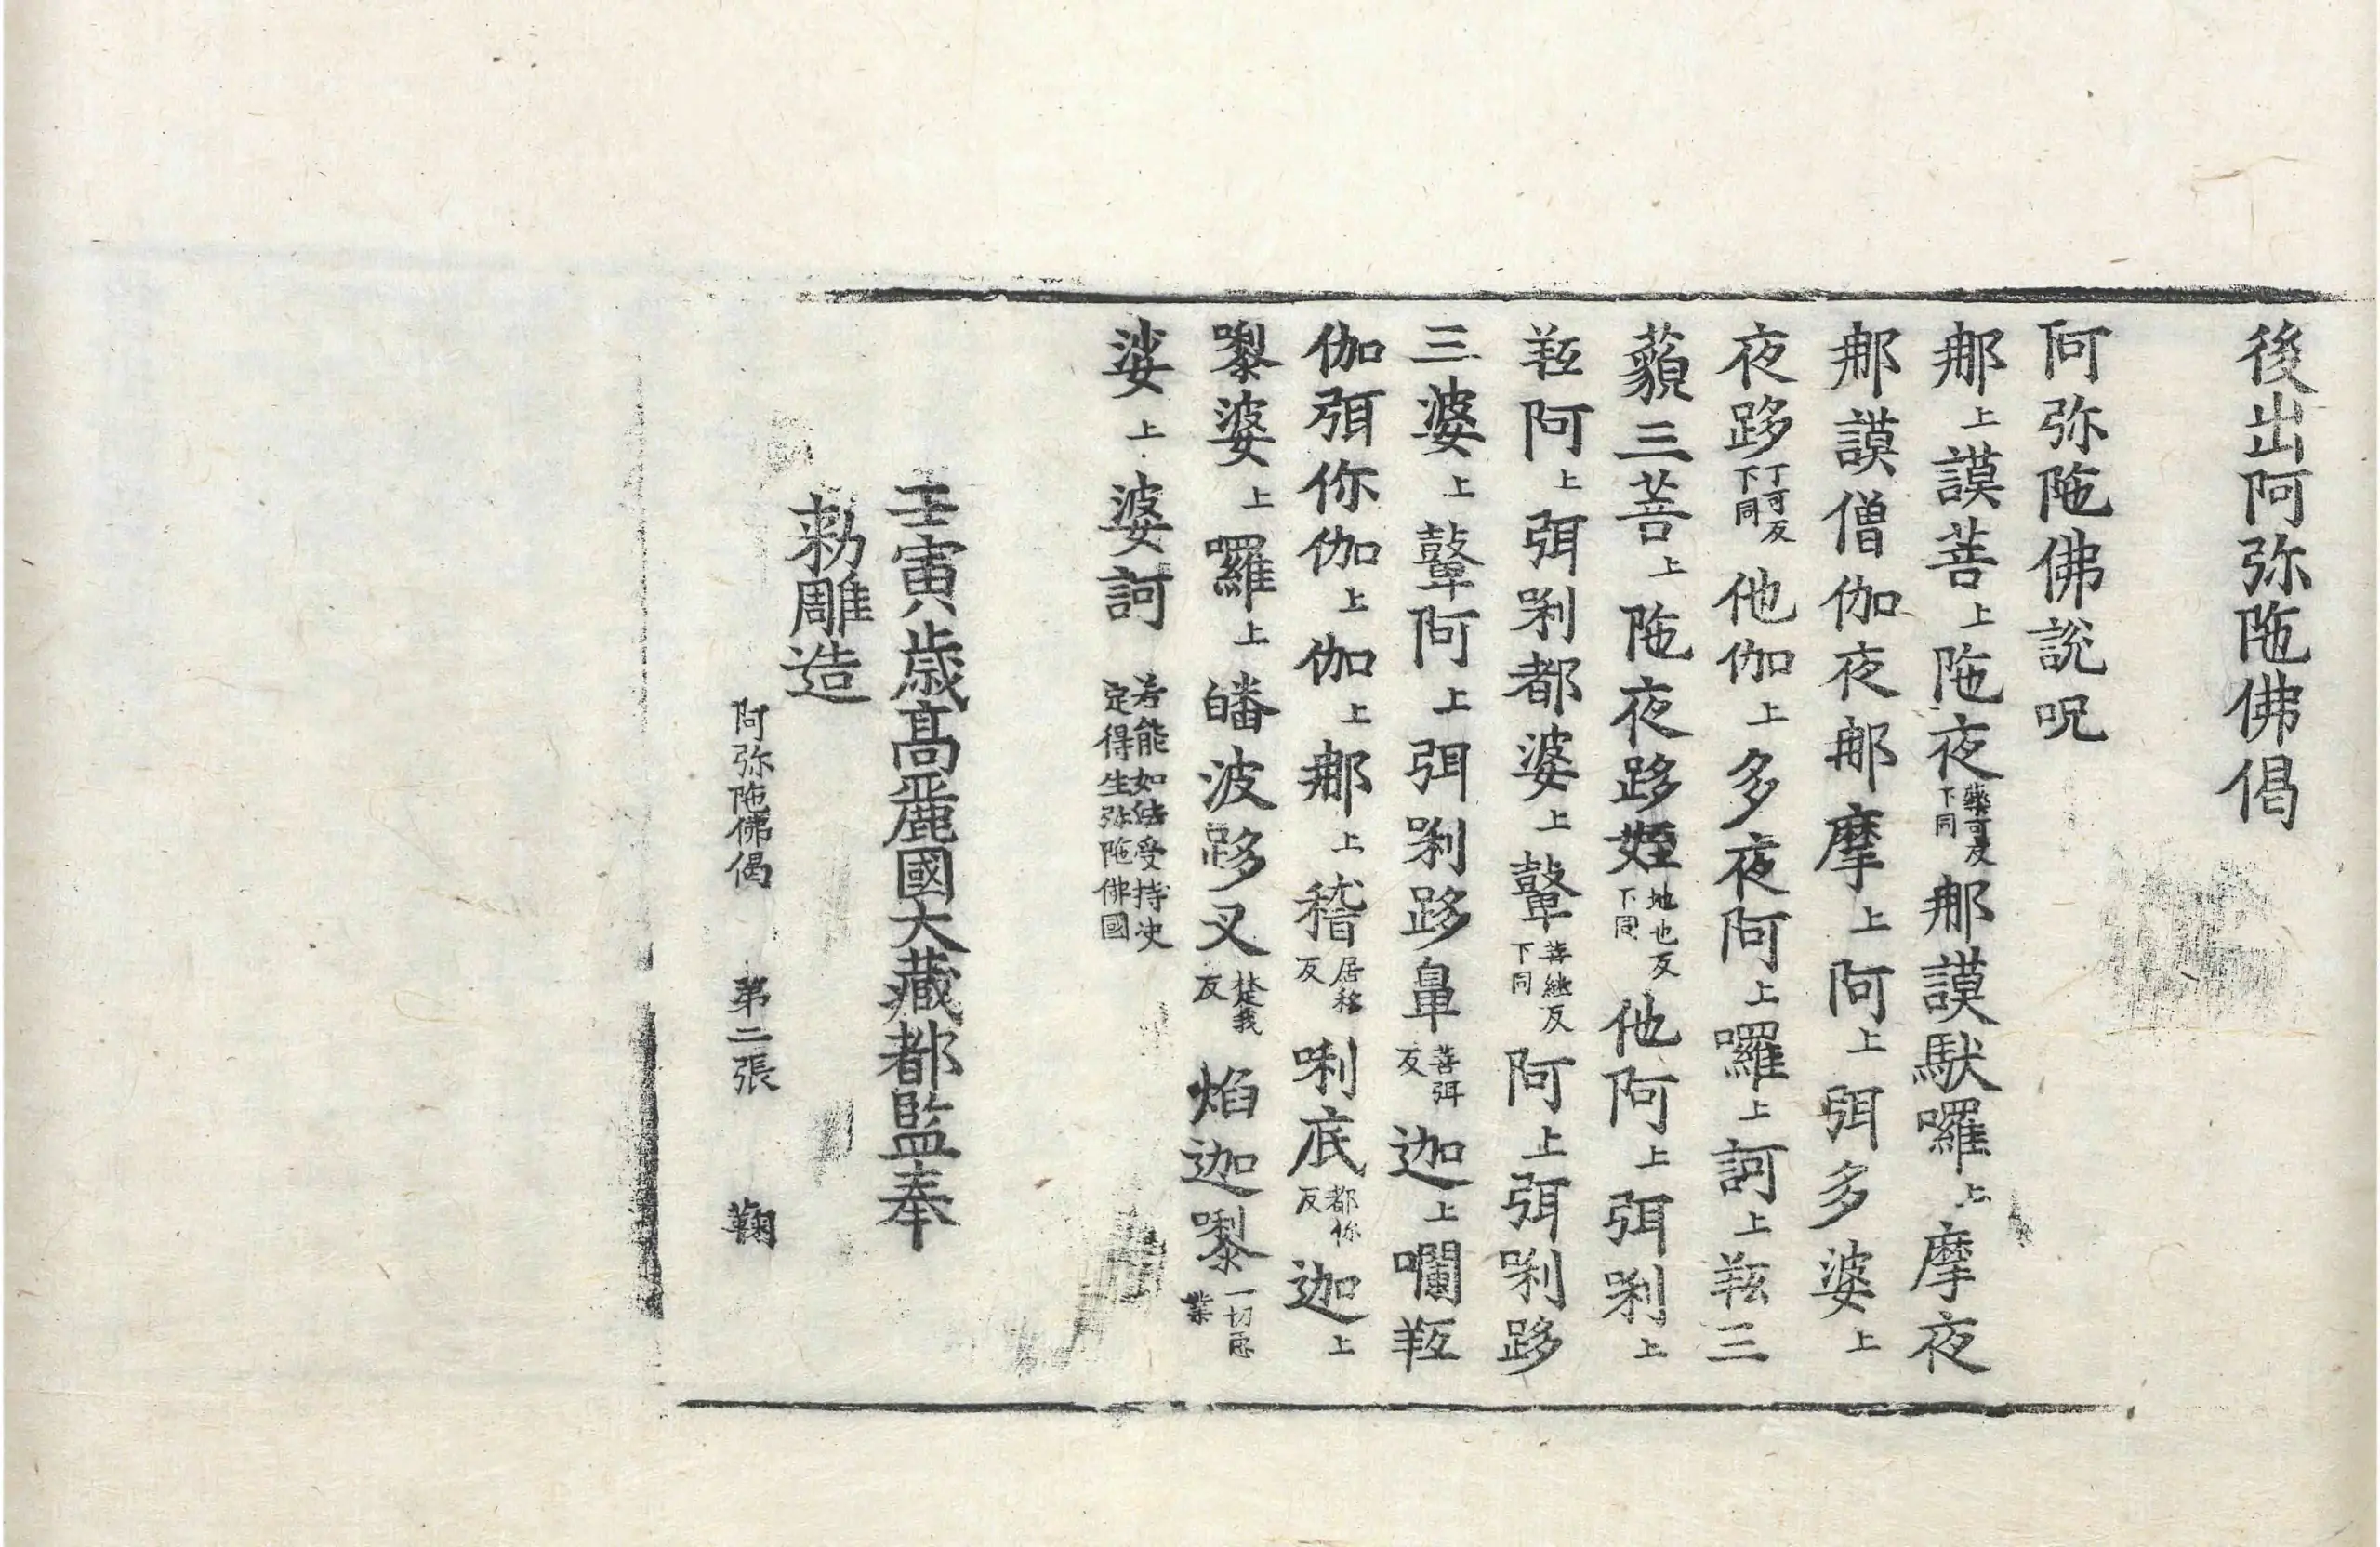 後出阿弥陁佛偈
阿弥陁佛說呪
那上謨菩上陁夜藥可反下同那謨馱囉上摩夜
那謨僧伽夜那摩上阿上弭多婆上
夜跢丁可反下同他伽上多夜阿上囉上訶上羝三
藐三菩上陁夜跢姪地也反下同他阿上弭唎上
羝阿上弭唎都婆上鼙菩繼反下同阿上弭唎跢
三婆上鼙阿上弭唎跢鼻菩弭反迦上囒羝
伽弭你伽上伽上那上稽居移反唎底都你反迦上
嚟婆上囉上皤波跢叉楚我反焰迦嚟一切惡業
娑上婆訶若能如法受持决定得生弥陁佛國
壬寅歳高麗國大藏都監奉
勑雕造
阿弥陁佛偈 第二張 鞠